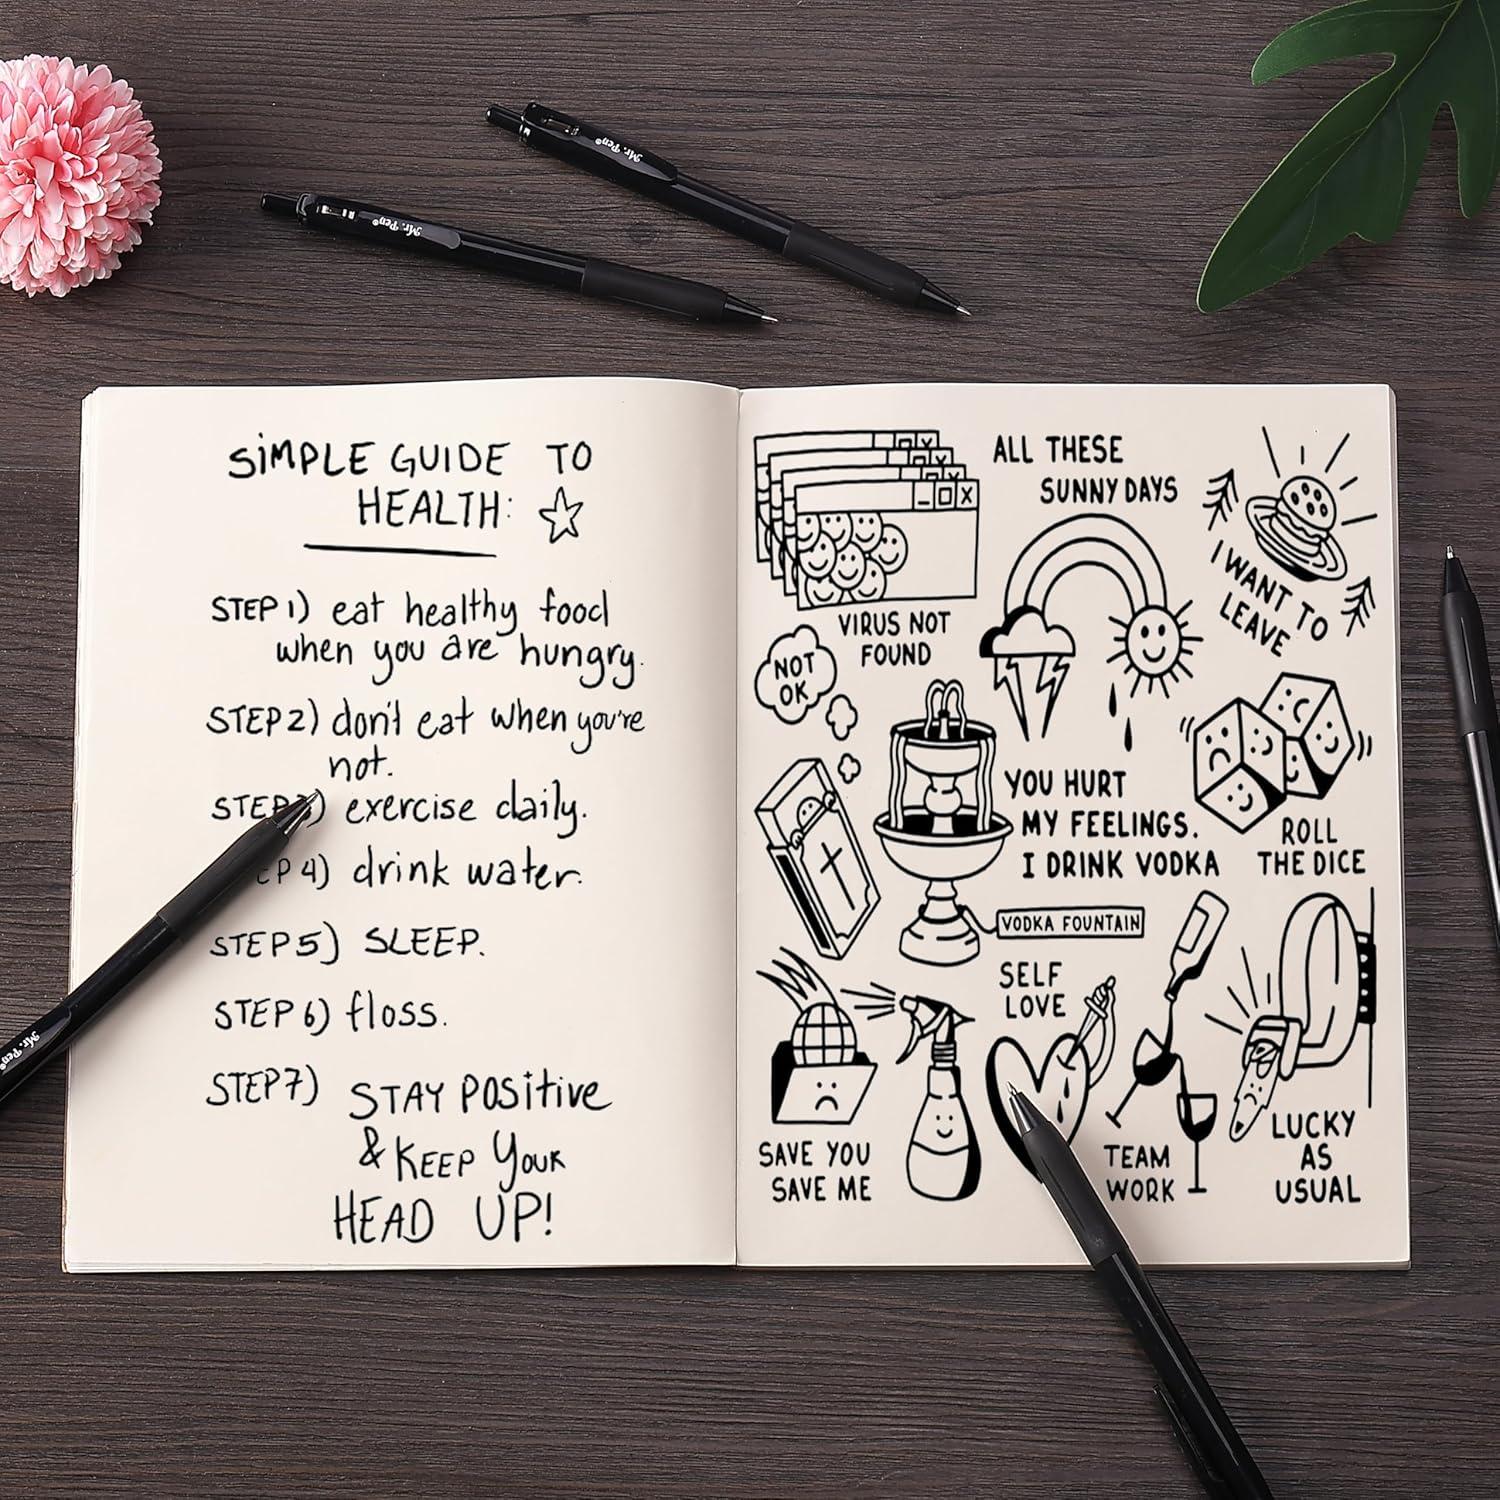 Mr. Pen®
Mr. Pen®
SiMPLE GUIDE TO
HEALTH:
STEP 1) eat healthy food
when you are hungry.
STEP 2) don't eat when you're
not.
STEP 3) exercise daily.
EP 4) drink water.
STEP 5) SLEEP.
STEP 6) floss.
STEP 7) STAY POSitive
& KEEP YOUR
HEAD UP!
Mr. Pen®
VIRUS NOT
FOUND
ALL THESE
SUNNY DAYS
I WANT TO
LEAVE
NOT
OK
YOU HURT
MY FEELINGS.
I DRINK VODKA
VODKA FOUNTAIN
ROLL
THE DICE
SAVE YOU
SAVE ME
SELF
LOVE
TEAM
WORK
LUCKY
AS
USUAL